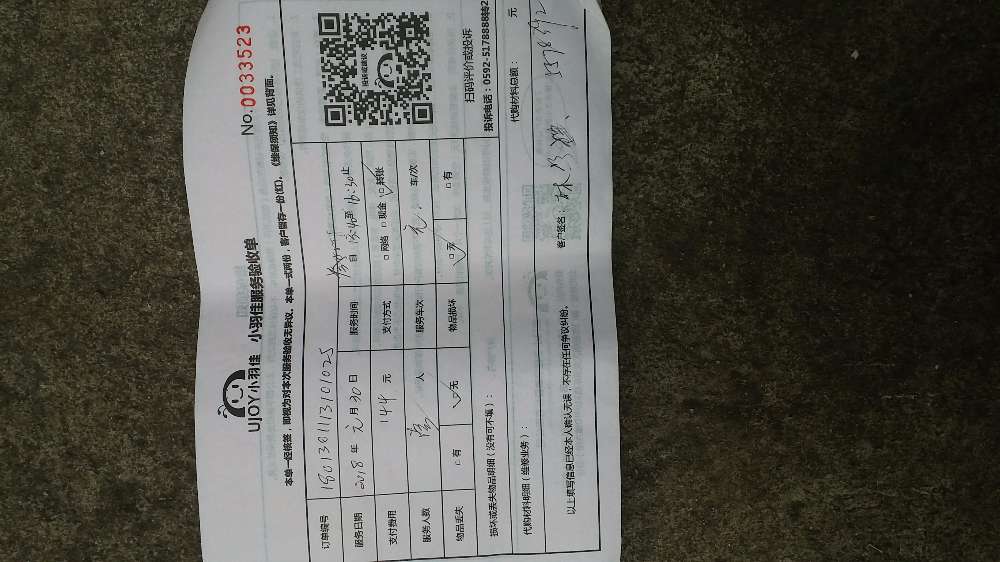 UJOY小羽佳 小羽佳服务验收单
No:0033523
本单一经核签，即视为对本次服务验收无异议。本单一式两份，客户留存一份(红)。《维保须知》详见背面。
订单编号
服务日期 2018年 元月30日 服务时间 自 至16:30止
支付费用 144 元 支付方式 □网络 □现金 □转账
服务人数 人 服务车次 车/次
物品丢失 □有 □无 物品损坏 □无 □有
损坏或丢失物品明细（没有可不填）：
投诉或建议
扫码评价或投诉
投诉电话：0592-5178888转2
代购材料明细（维修业务）：
代购材料总额： 元
以上填写信息已经本人确认无误，不存在任何争议纠纷。
客户签名：